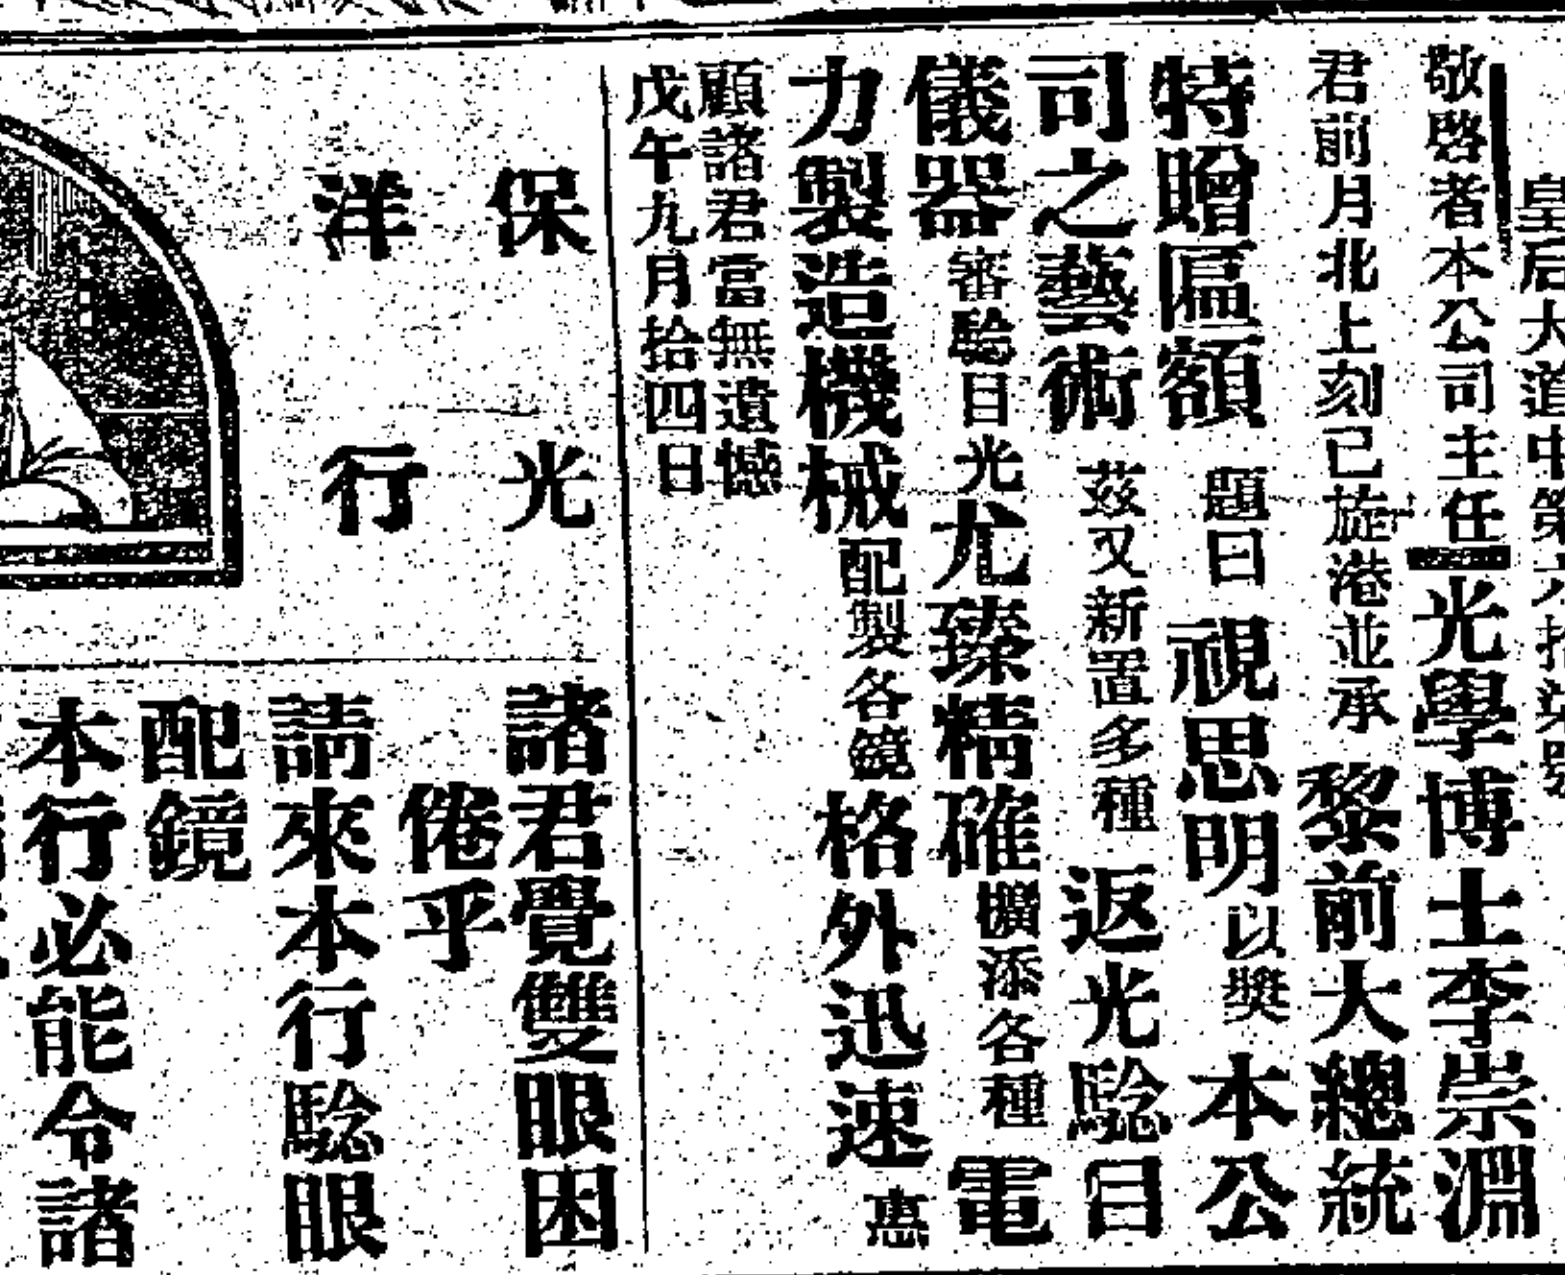 皇后大道中第
敬啓者本公司主任光學博士李崇淵
君前月北上刻已旋港並承黎前大總統
特贈匾額題曰視思明以奬本公
司之藝術茲又新置多種返光騐目
儀器審騐目光尤臻精確擴添各種電
力製造機械配製各鏡格外迅速惠
顧諸君當無遺憾
戊午九月拾四日
保光
洋行
諸君覺雙眼困
倦乎
請來本行騐眼
配鏡
本行必能令諸